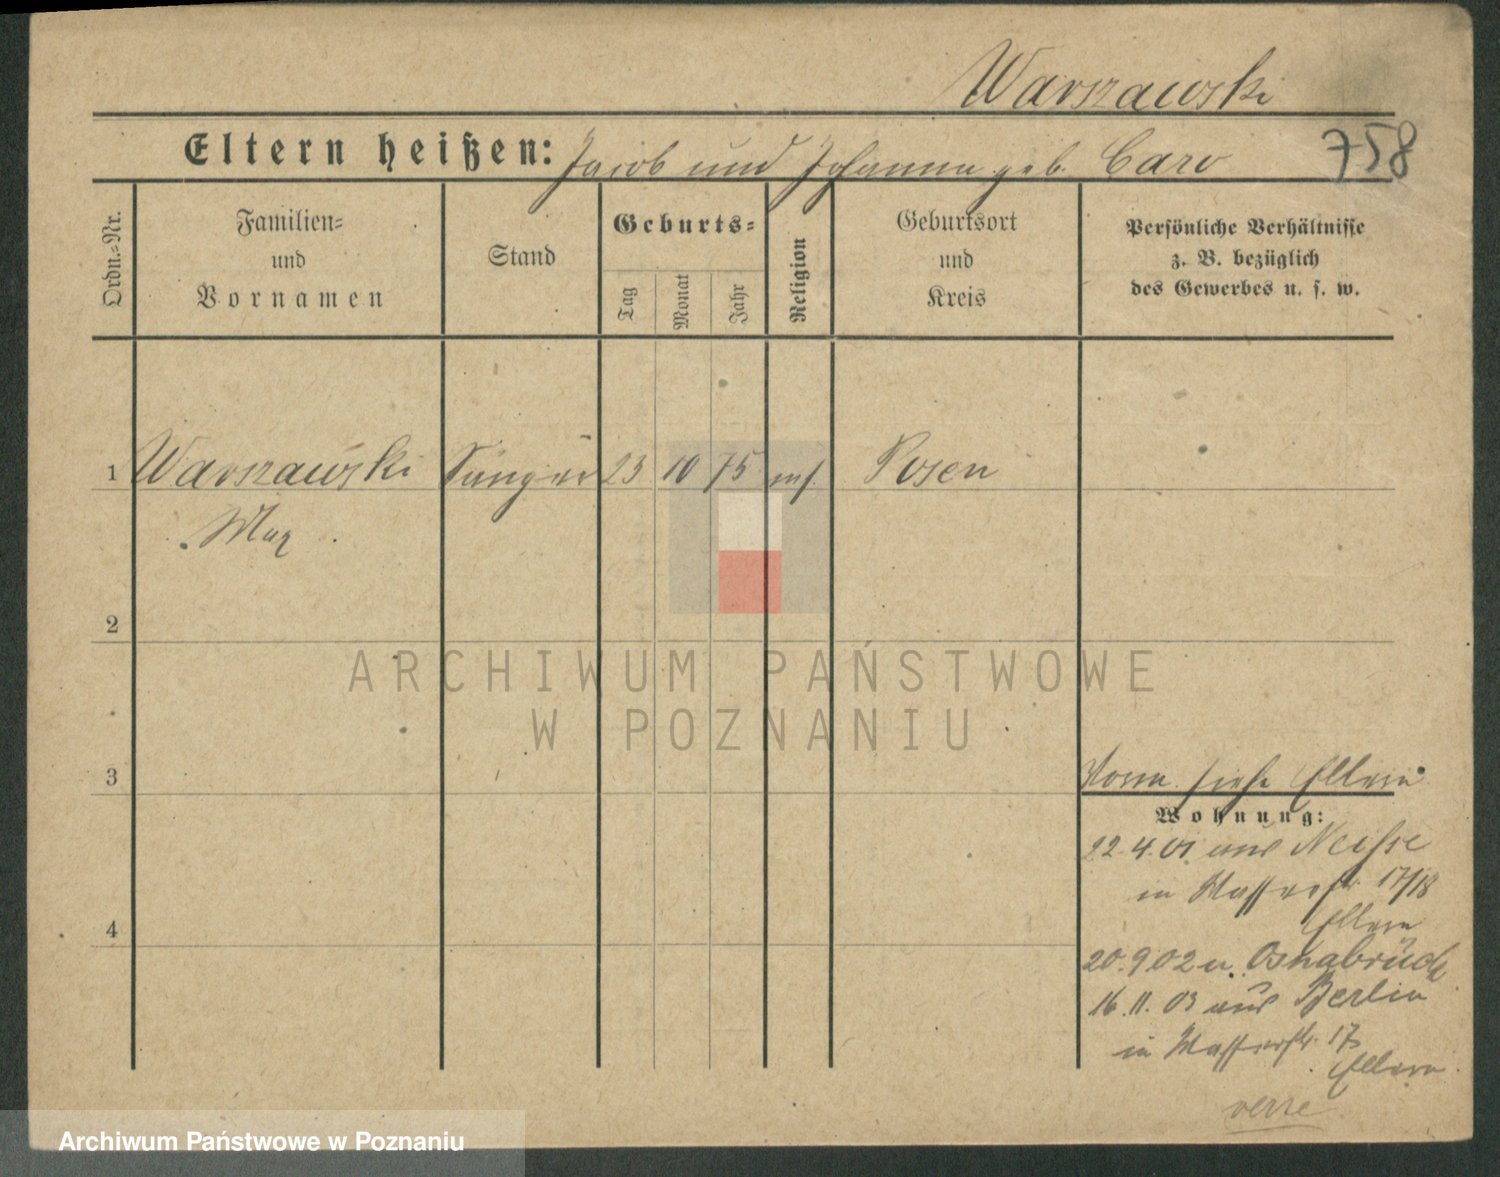 Warszawski
758
Eltern heißen: Jacob und Johanna geb. Caro
Ordn.-Nr.
Familien-
und
Vornamen
Stand
Geburts-
Tag
Monat
Jahr
Religion
Geburtsort
und
Kreis
Persönliche Verhältnisse
z. B. bezüglich
des Gewerbes u. s. w.
1 Warszawski Sänger 23 10 75 mf. Posen
Max
2
ARCHIWUM PAŃSTWOWE
W POZNANIU
3
siehe Eltern
Wohnung:
22.4.01 aus Neisse
in Wasserstr. 17/18
Eltern
4
20.9.02 n. Osnabrück
16.11.03 aus Berlin
in Wasserstr. 17
Eltern
Archiwum Państwowe w Poznaniu